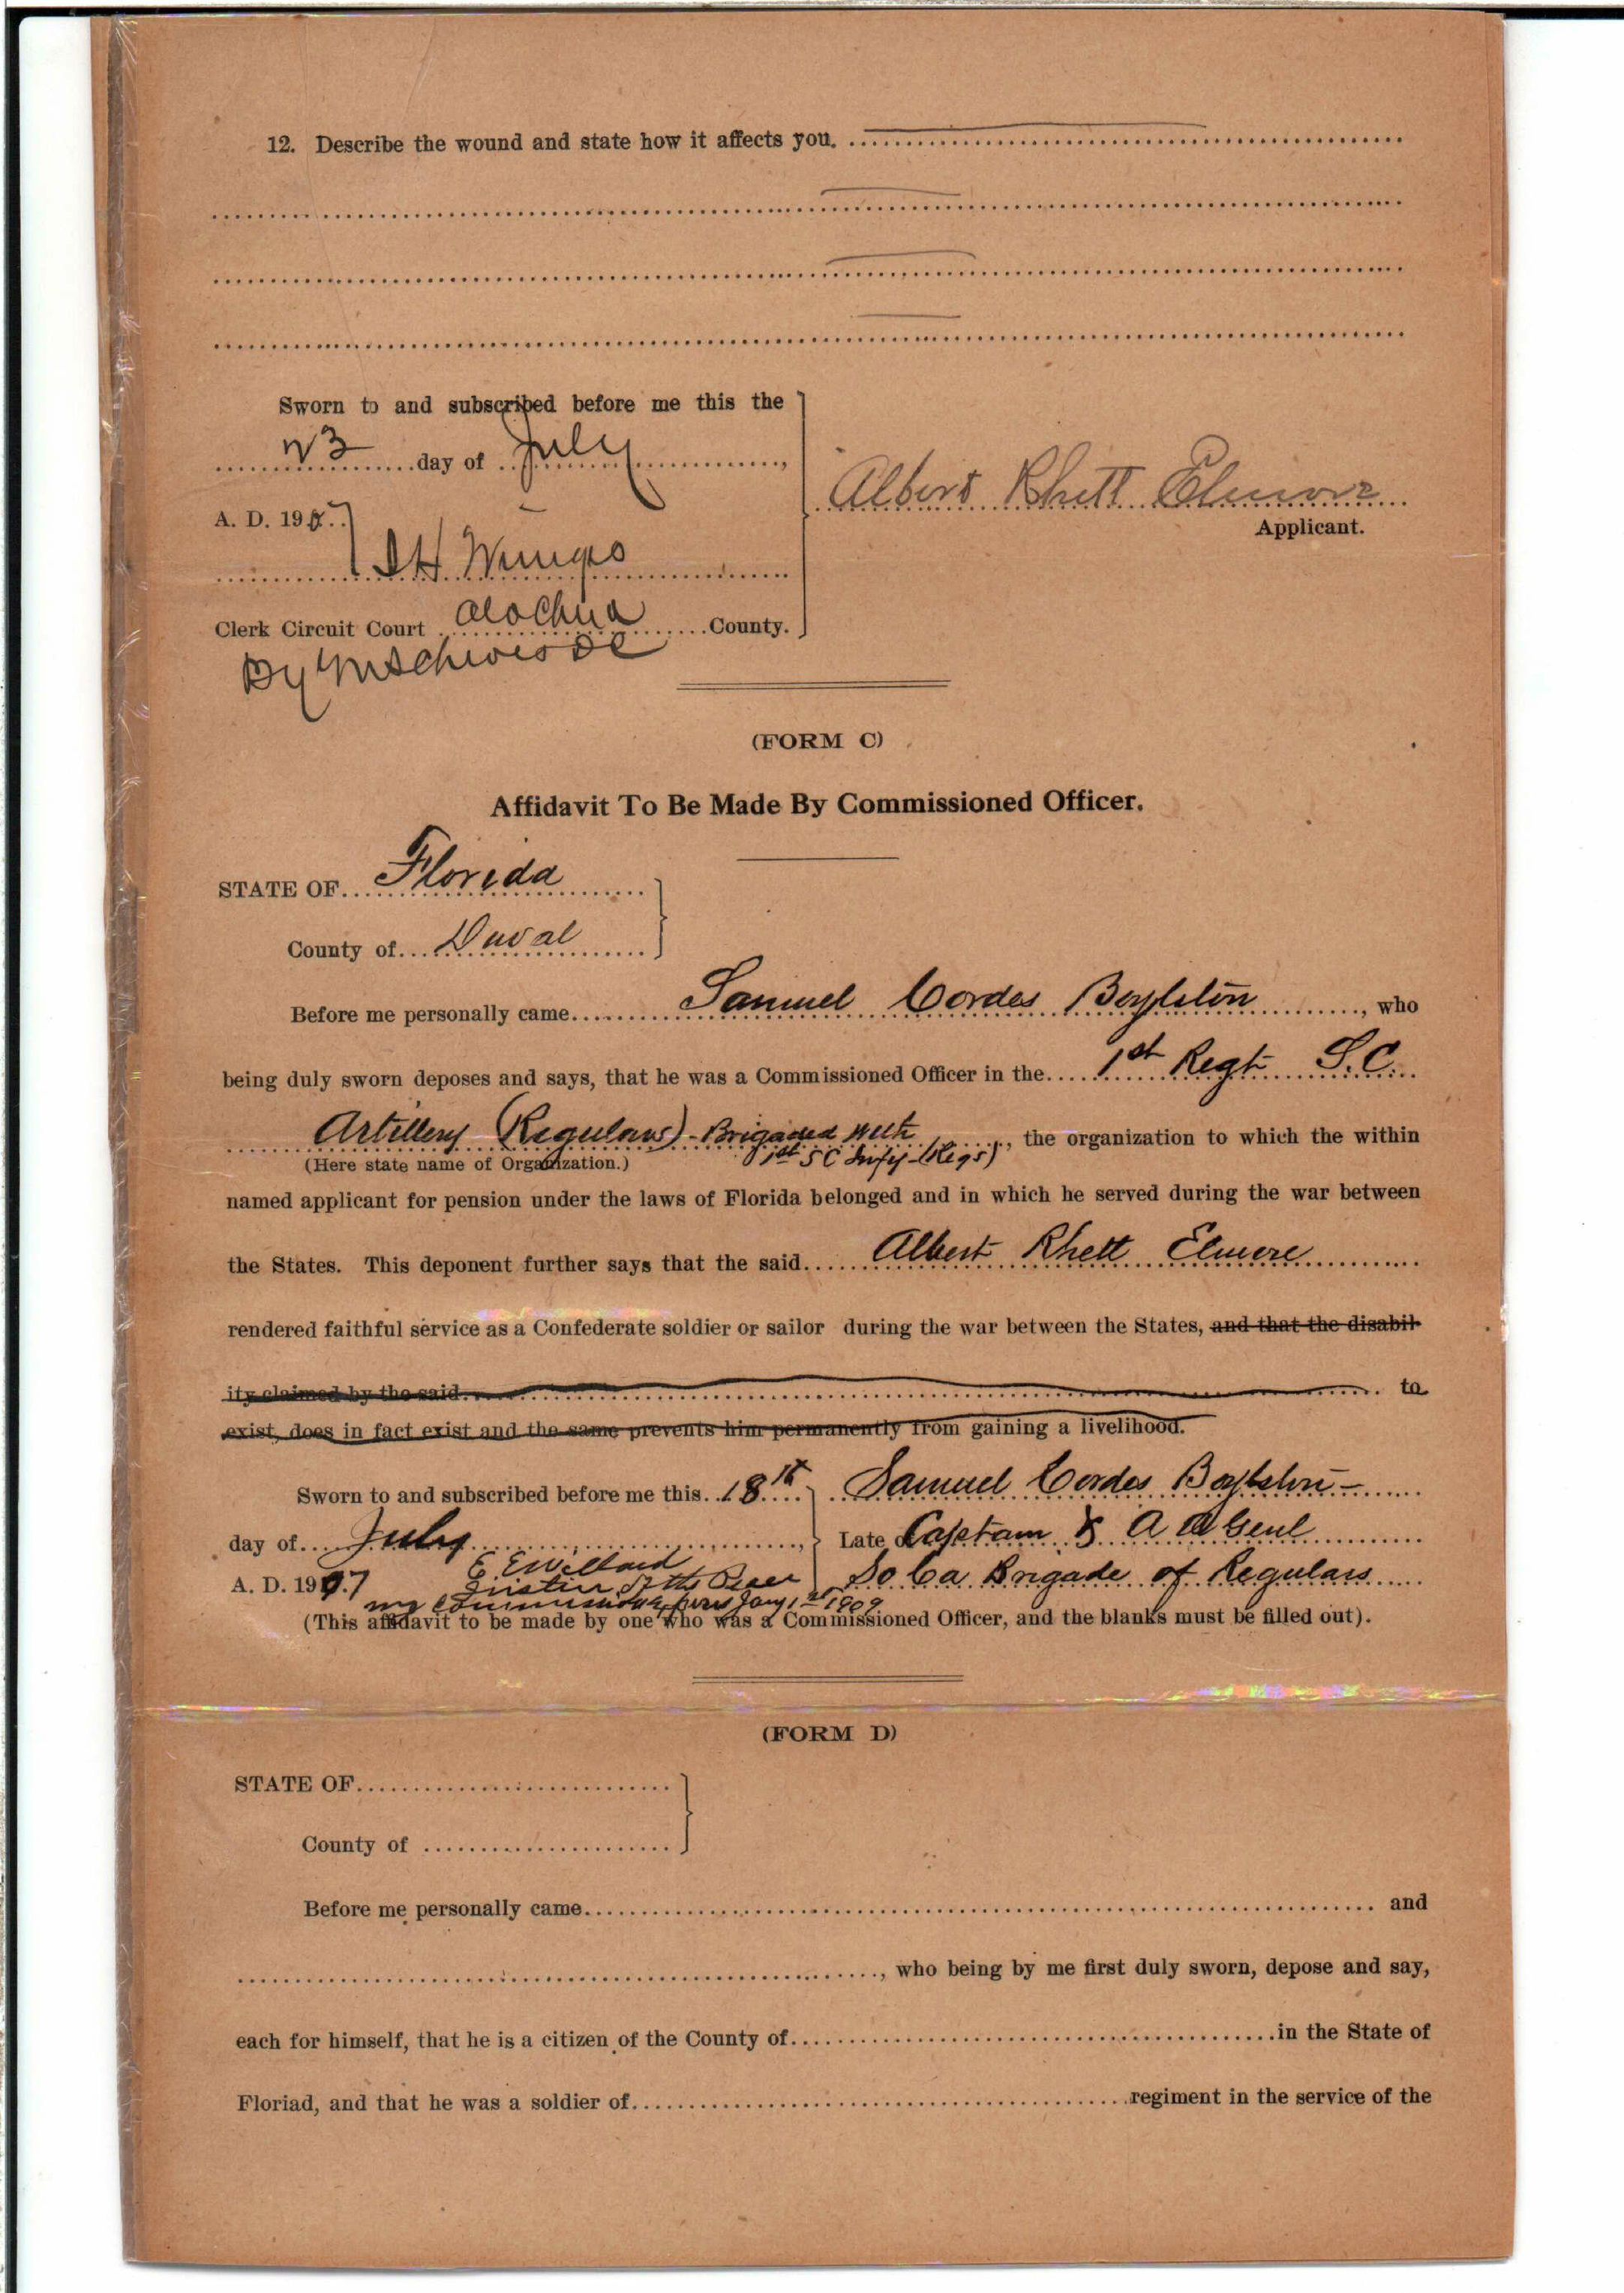 12. Describe the wound and state how it affects you.
Sworn to and subscribed before me this the
23 day of July,
Albert Rhett Elmore
A. D. 1907
Applicant.
Clerk Circuit Court Alachua County.
By
(FORM C)
Affidavit To Be Made By Commissioned Officer.
STATE OF Florida
County of Duval
Before me personally came Samuel Cordes Boylston, who
being duly sworn deposes and says, that he was a Commissioned Officer in the 1st Regt S.C.
Artillery (Regulars) - Brigaded with, the organization to which the within
(Here state name of Organization.) 1st S C Infy - (Regs)
named applicant for pension under the laws of Florida belonged and in which he served during the war between
the States. This deponent further says that the said Albert Rhett Elmore
rendered faithful service as a Confederate soldier or sailor during the war between the States, and that the disabil-
ity claimed by the said to
exist, does in fact exist and the same prevents him permanently from gaining a livelihood.
Sworn to and subscribed before me this 18th Samuel Cordes Boylston -
day of July, Late of Captain & A A Genl
E. E Willard
A. D. 1907 Justice of the Peace So Ca Brigade of Regulars
my commission expires Jany 1st 1909
(This affidavit to be made by one who was a Commissioned Officer, and the blanks must be filled out).
(FORM D)
STATE OF
County of
Before me personally came and
, who being by me first duly sworn, depose and say,
each for himself, that he is a citizen of the County of in the State of
Floriad, and that he was a soldier of regiment in the service of the